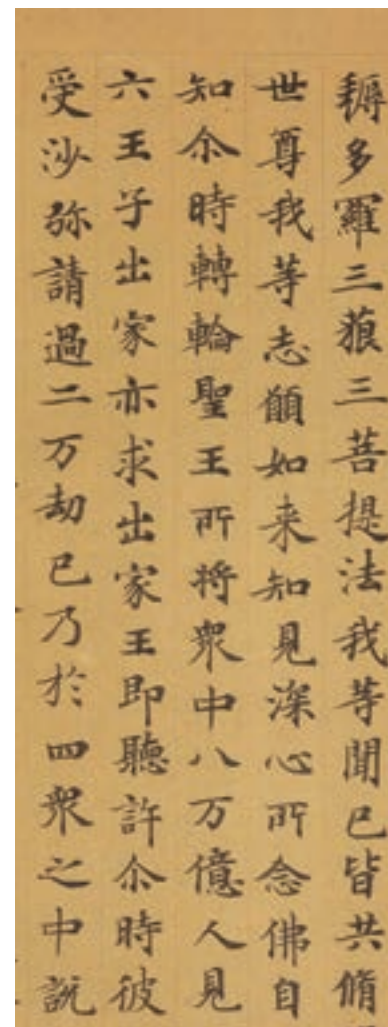 耨多羅三藐三菩提法我等聞已皆共脩
世尊我等志願如来知見深心所念佛自
知尒時轉輪聖王所将眾中八万億人見
六王子出家亦求出家王即聽許尒時彼
受沙弥請過二万劫已乃於四眾之中說